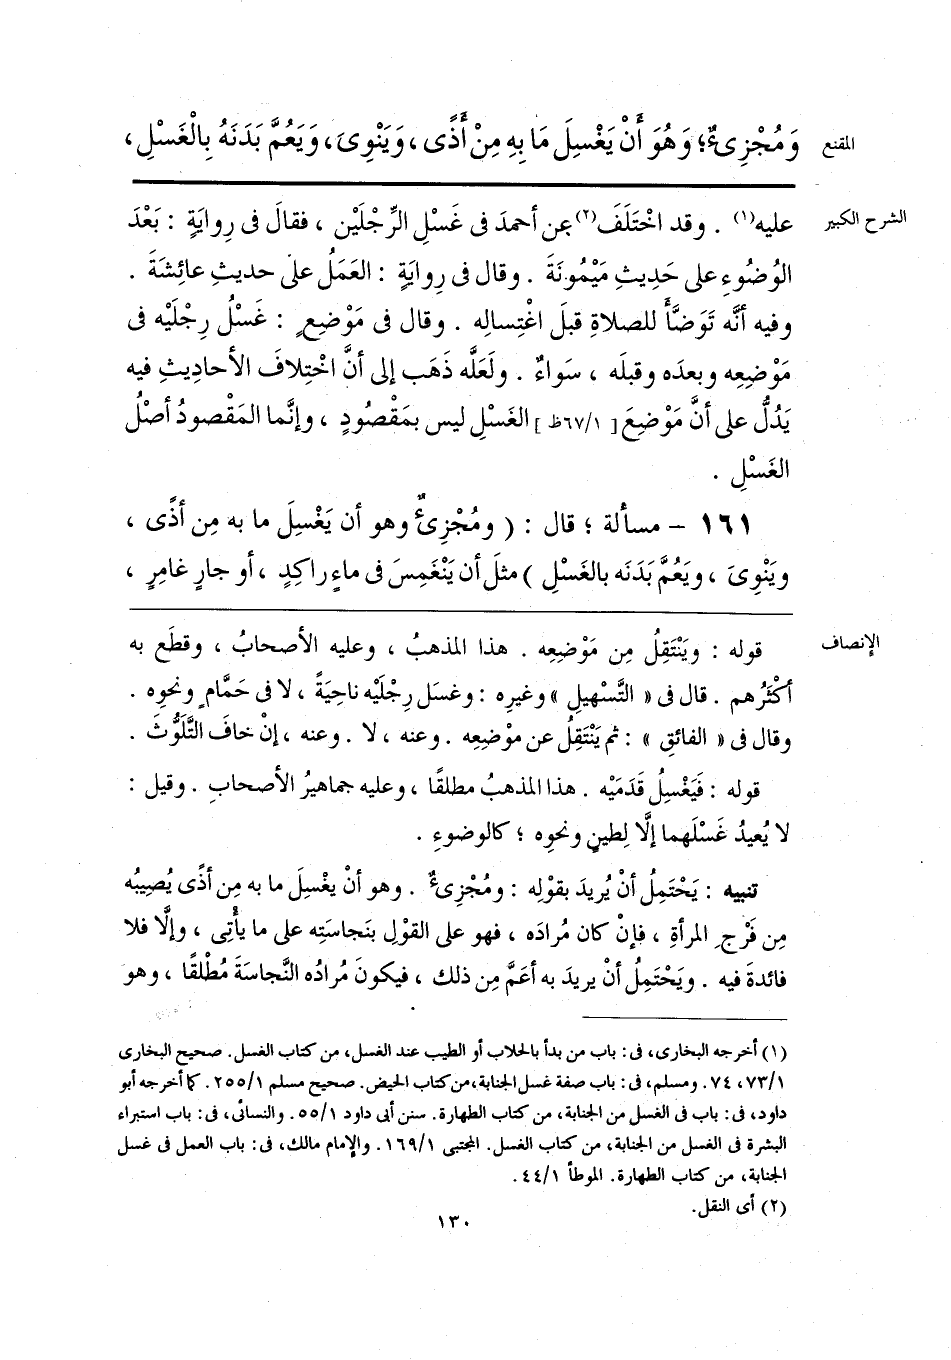 المقنع
وَمُجْزِىءٌ؛ وَهُوَ أَنْ يَغْسِلَ مَا بِهِ مِنْ أَذًى ، وَيَنْوِىَ، وَيَعُمَّ بَدَنَهُ بِالْغَسْلِ ،
الشرح الكبير
عليه(١) . وقد اخْتَلَفَ(٢) عن أحمدَ فى غَسْلِ الرِّجْلَيْن ، فقالَ فى رِوايَةٍ : بَعْدَ
الوُضُوءِ على حَدِيثِ مَيْمُونَةَ . وقال فى رِوايَةٍ : العَمَلُ على حديثِ عائِشَةَ .
وفيه أنَّه تَوَضَّأَ للصلاةِ قبلَ اغْتِسالِه . وقال فى مَوْضِعٍ : غَسْلُ رِجْلَيْه فى
مَوْضِعِه وبعدَه وقبلَه ، سَواءٌ . ولَعَلَّه ذَهَب إلى أنَّ اخْتِلافَ الأحادِيثِ فيه
يَدُلُّ على أنَّ مَوْضِعَ [ ٦٧/١ظ ] الغَسْلِ ليس بمَقْصُودٍ ، وإنَّما المَقْصودُ أصْلُ
الغَسْلِ .
١٦١ – مسألة ؛ قال : ( ومُجْزِىءٌ وهو أن يَغْسِلَ ما به مِن أذًى ،
ويَنْوِىَ ، ويَعُمَّ بَدَنَه بالغَسْلِ ) مثلَ أن يَنْغَمِسَ فى ماءٍ راكِدٍ ، أو جارٍ غامِرٍ ،
الإنصاف
قوله : ويَنْتَقِلُ مِن مَوْضِعِه . هذا المذهبُ ، وعليه الأصحابُ ، وقطَع به
أكْثَرُهم . قال فى « التَّسْهيلِ » وغيرِه : وغسَل رِجْلَيْه ناحِيَةً ، لا فى حَمَّامٍ ونحوِه .
وقال فى « الفائقِ » : ثم يَنْتَقِلُ عن موْضِعِه . وعنه ، لا . وعنه ، إنْ خافَ التَّلَوُّثَ .
قوله : فَيَغْسِلُ قَدَمَيْه . هذا المذهبُ مطلقًا ، وعليه جماهيرُ الأصحابِ . وقيل :
لا يُعيدُ غَسْلَهما إلَّا لِطينٍ ونحوِه ؛ كالوضوءِ .
تنبيه : يَحْتَمِلُ أنْ يُريدَ بقوْلِه : ومُجْزِىءٌ . وهو أنْ يغْسِلَ ما به مِن أذًى يُصِيبُه
مِن فَرْجِ المرأةِ ، فإنْ كان مُرادَه ، فهو على القوْلِ بنَجاستِه على ما يأْتِى ، وإلَّا فلا
فائدةَ فيه . ويَحْتَمِلُ أنْ يريدَ به أعَمَّ مِن ذلك ، فيكونَ مُرادُه النَّجاسَةَ مُطْلقًا ، وهو
(١) أخرجه البخارى، فى: باب من بدأ بالحلاب أو الطيب عند الغسل، من كتاب الغسل. صحيح البخارى
٧٣/١، ٧٤. ومسلم، فى: باب صفة غسل الجنابة، من كتاب الحيض. صحيح مسلم ٢٥٥/١. كما أخرجه أبو
داود، فى: باب فى الغسل من الجنابة، من كتاب الطهارة. سنن أبى داود ٥٥/١. والنسائى، فى: باب استبراء
البشرة فى الغسل من الجنابة، من كتاب الغسل. المجتبى ١٦٩/١. والإمام مالك، فى: باب العمل فى غسل
الجنابة، من كتاب الطهارة. الموطأ ٤٤/١.
(٢) أى النقل.
١٣٠